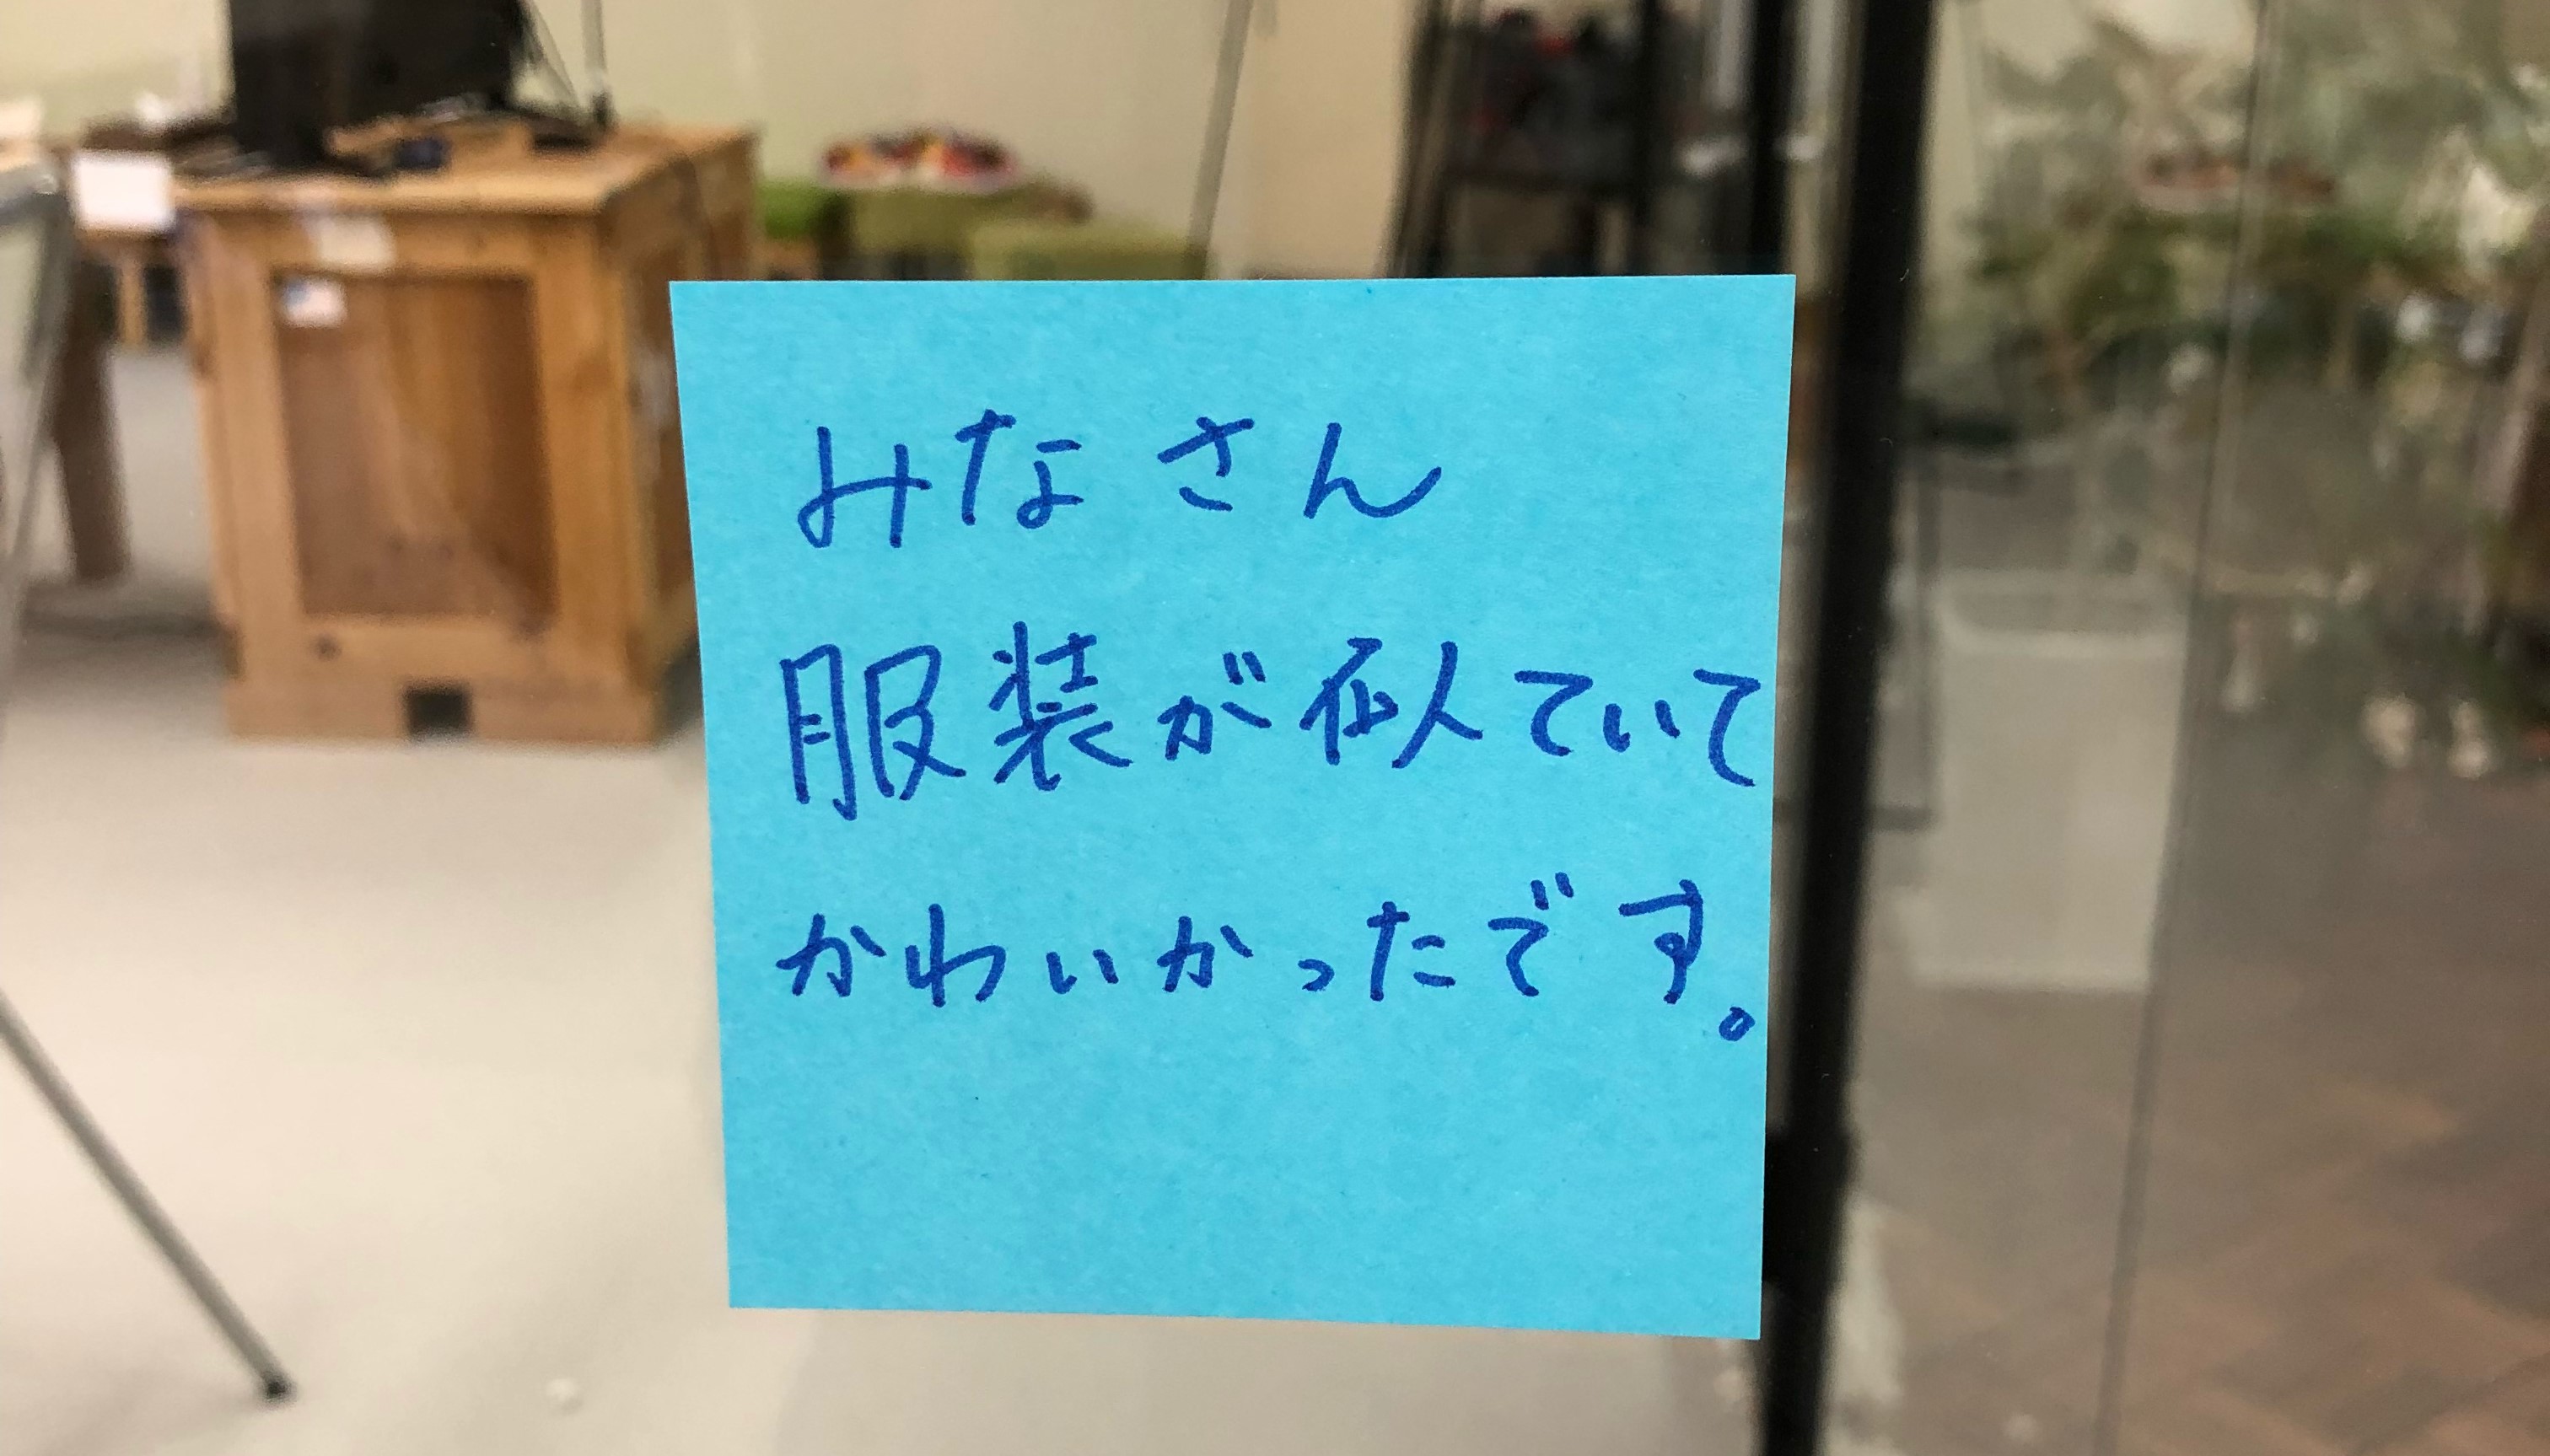 みなさん
服装が似ていて
かわいかったです。